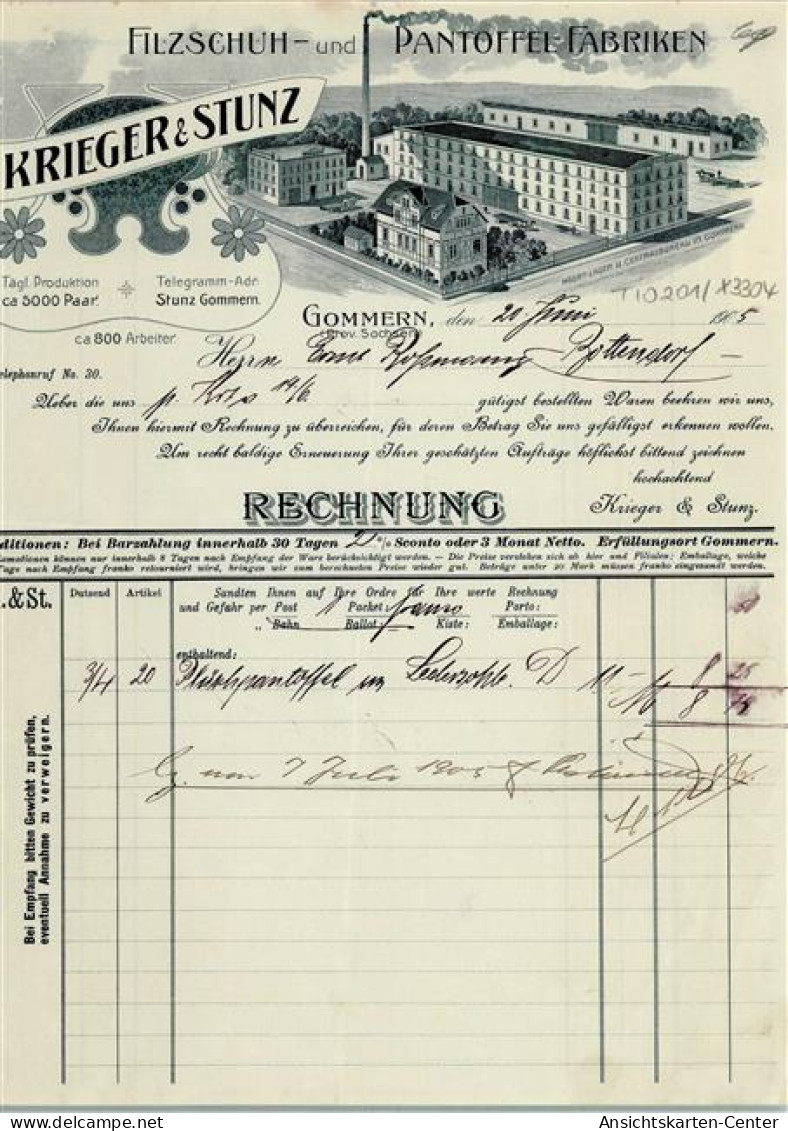 FILZSCHUH- und PANTOFFEL-FABRIKEN
KRIEGER & STUNZ
Tägl. Produktion
ca 5000 Paar.
Telegramm-Adr.
Stunz Gommern.
ca 800 Arbeiter.
HAUPT-LAGER U. CENTRALBUREAU IN GOMMERN
T10201/X3304
GOMMERN, den 20 Juni 1905
(Prov. Sachsen)
Herrn Bottendorf
elephonruf No. 30.
Ueber die uns p. 19/6 gütigst bestellten Waren beehren wir uns,
Ihnen hiermit Rechnung zu überreichen, für deren Betrag Sie uns gefälligst erkennen wollen.
Um recht baldige Erneuerung Ihrer geschätzten Aufträge höflichst bittend zeichnen
hochachtend
RECHNUNG
Krieger & Stunz.
ditionen: Bei Barzahlung innerhalb 30 Tagen 2 % Sconto oder 3 Monat Netto. Erfüllungsort Gommern.
lamationen können nur innerhalb 8 Tagen nach Empfang der Ware berücksichtigt werden. — Die Preise verstehen sich ab hier und Filialen; Emballage, welche
Tage nach Empfang franko retourniert wird, bringen wir zum berechneten Preise wieder gut. Beträge unter 20 Mark müssen franko eingesandt werden.
.&St.
Dutzend
Artikel
Sandten Ihnen auf Ihre Ordre für Ihre werte Rechnung
und Gefahr per Post 1 Packet franco Porto:
„ Bahn Ballot: Kiste: Emballage:
50
enthaltend:
3/4 20 Plüschpantoffel m Ledersohle D 11 - 8 25
8 75
7 Juli 1905
Bei Empfang bitten Gewicht zu prüfen,
eventuell Annahme zu verweigern.
Ansichtskarten-Center